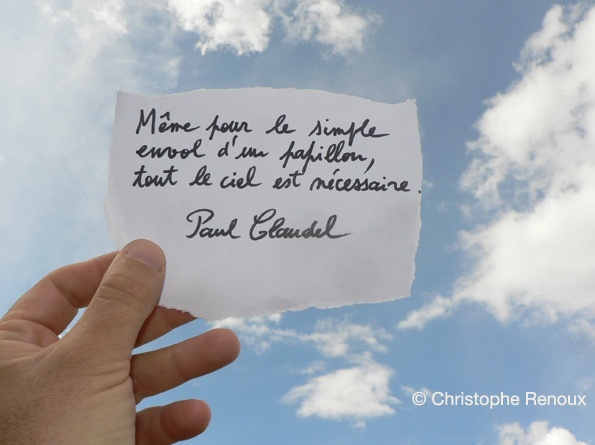 Même pour le simple
envol d'un papillon,
tout le ciel est nécessaire.
Paul Claudel
© Christophe Renoux